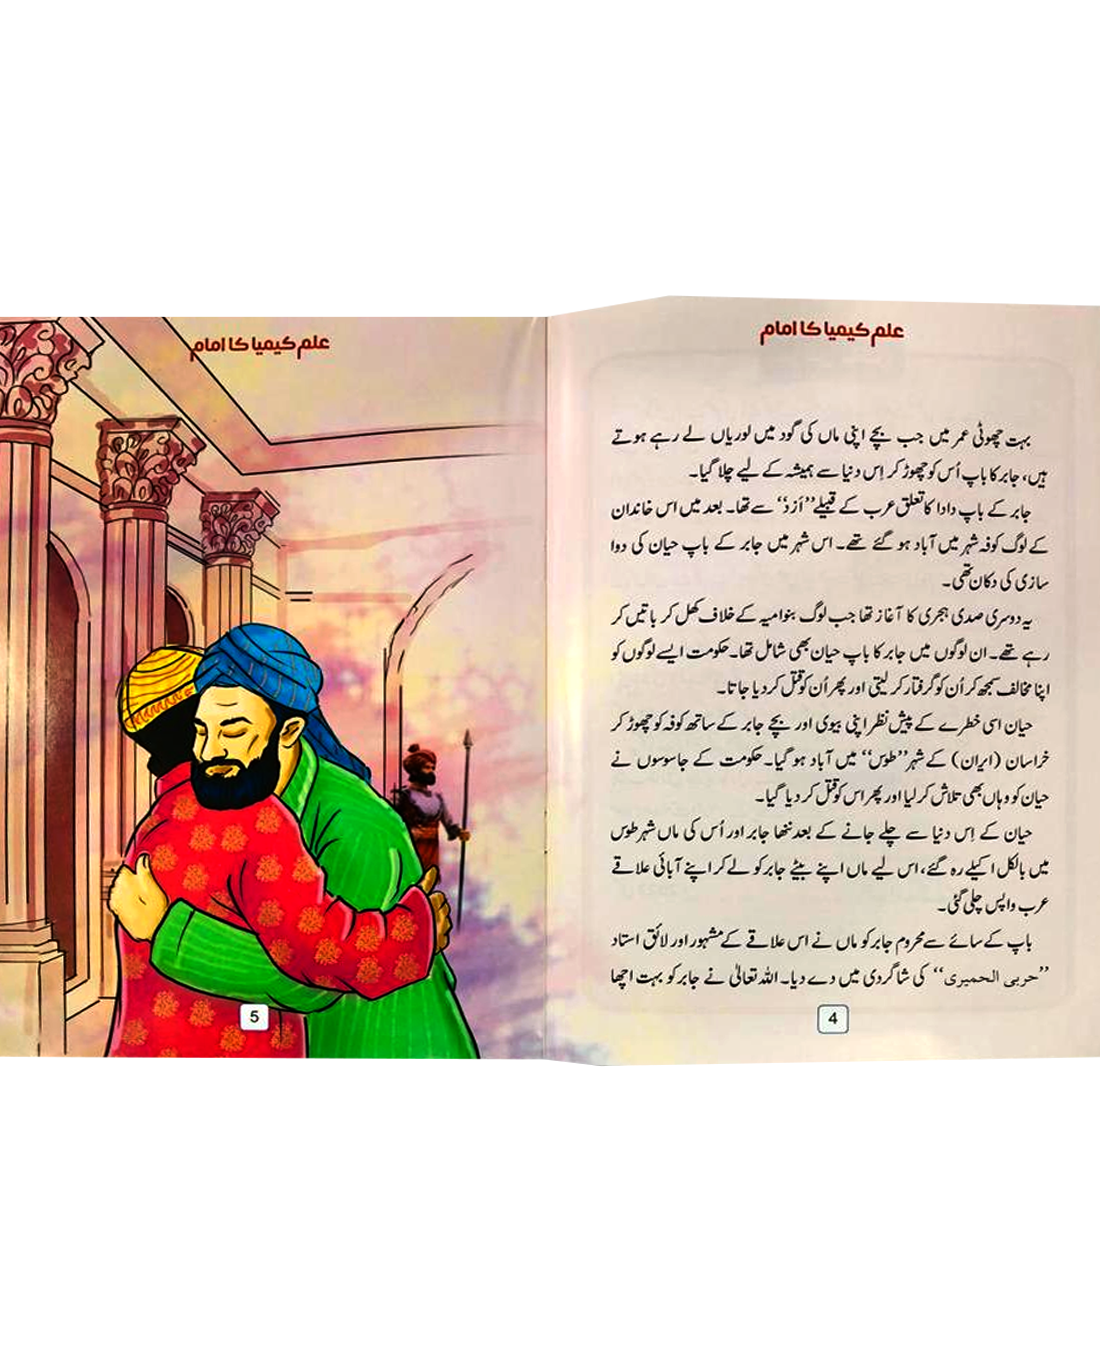 علم کیمیا کا امام
بہت چھوٹی عمر میں جب بچے اپنی ماں کی گود میں لوریاں لے رہے ہوتے
ہیں، جابر کا باپ اُس کو چھوڑ کر اِس دنیا سے ہمیشہ کے لیے چلا گیا۔
جابر کے باپ دادا کا تعلق عرب کے قبیلے ”اَزد“ سے تھا۔ بعد میں اس خاندان
کے لوگ کوفہ شہر میں آباد ہو گئے تھے۔ اس شہر میں جابر کے باپ حیان کی دوا
سازی کی دکان تھی۔
یہ دوسری صدی ہجری کا آغاز تھا جب لوگ بنوامیہ کے خلاف کھل کر باتیں کر
رہے تھے۔ ان لوگوں میں جابر کا باپ حیان بھی شامل تھا۔ حکومت ایسے لوگوں کو
اپنا مخالف سمجھ کر اُن کو گرفتار کر لیتی اور پھر اُن کو قتل کر دیا جاتا۔
حیان اسی خطرے کے پیش نظر اپنی بیوی اور بچے جابر کے ساتھ کوفہ کو چھوڑ کر
خراسان (ایران) کے شہر ”طوس“ میں آباد ہو گیا۔ حکومت کے جاسوسوں نے
حیان کو وہاں بھی تلاش کر لیا اور پھر اس کو قتل کر دیا گیا۔
حیان کے اِس دنیا سے چلے جانے کے بعد ننھا جابر اور اُس کی ماں شہر طوس
میں بالکل اکیلے رہ گئے، اس لیے ماں اپنے بیٹے جابر کو لے کر اپنے آبائی علاقے
عرب واپس چلی گئی۔
باپ کے سائے سے محروم جابر کو ماں نے اس علاقے کے مشہور اور لائق استاد
”حربی الحمیری“ کی شاگردی میں دے دیا۔ اللہ تعالیٰ نے جابر کو بہت اچھا
4
علم کیمیا کا امام
5